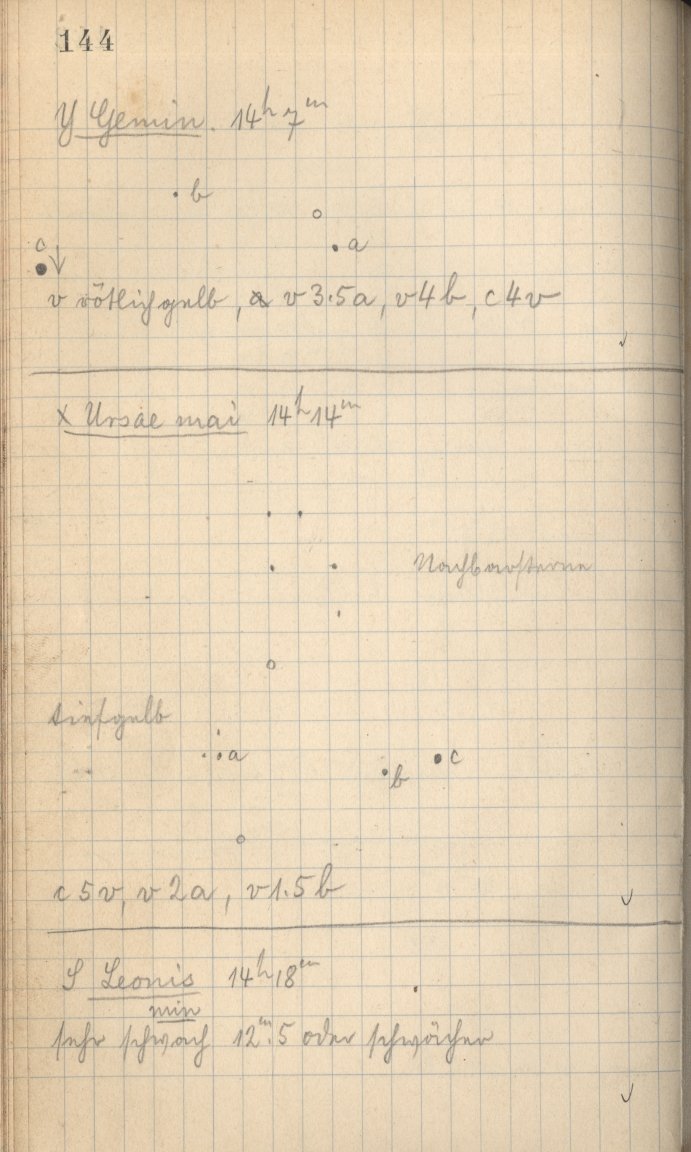 144
Y Gemin. 14h 7m
b
a
c
v rötlichgelb, v 3.5a, v4b, c4v
X Ursae mai 14h 14m
Nachbarsterne
tiefgelb
a
c
b
c5v, v2a, v1.5b
S Leonis 14h 18m
min
sehr schwach 12m.5 oder schwächer